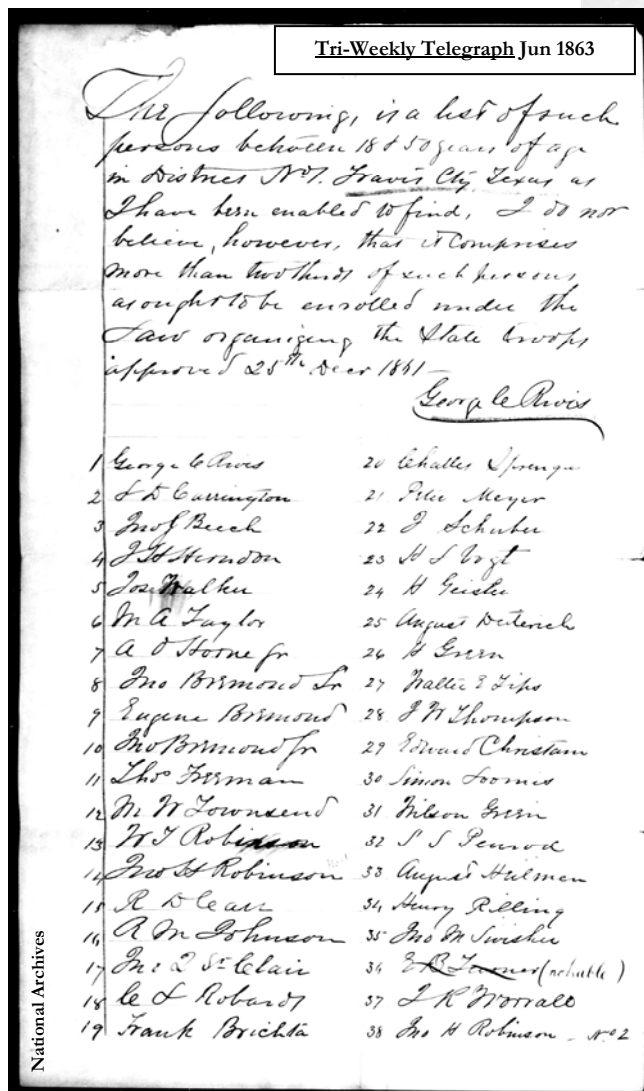 Tri-Weekly Telegraph Jun 1863
The following, is a list of such
persons between 18 & 50 years of age
in District No 1. Travis Cty Texas as
I have been enabled to find, I do not
believe, however, that it comprises
more than two thirds of such persons
as ought to be enrolled under the
Law organizing the State troops
approved 25th Decr 1861—
George C Rives
1 George C Rives
2 L D Carrington
3 Jno G Beech
4 J H Herndon
5 Jos Walker
6 M A Taylor
7 A O Horne Jr
8 Jno Bremond Sr
9 Eugene Bremond
10 Jno Bremond Jr
11 Thos Freeman
12 M W Townsend
13 W T Robinson
14 Jno H Robinson
15 R D Carr
16 A M Johnson
17 Jno Q St Clair
18 C L Robards
19 Frank Brichta
20 Challes
21 Peter Meyer
22 J Schuber
23 H S Vogt
24 H Geisler
25 August Deiterich
26 H Green
27 Walter E Tips
28 J W Thompson
29 Edward Christian
30 Simon Loomis
31 Wilson Green
32 S S Penrod
33 August Heilman
34 Henry Rilling
35 Jno M Swisher
36 E B Turner (not liable)
37 I R Worrall
38 Jno H Robinson - No 2
National Archives